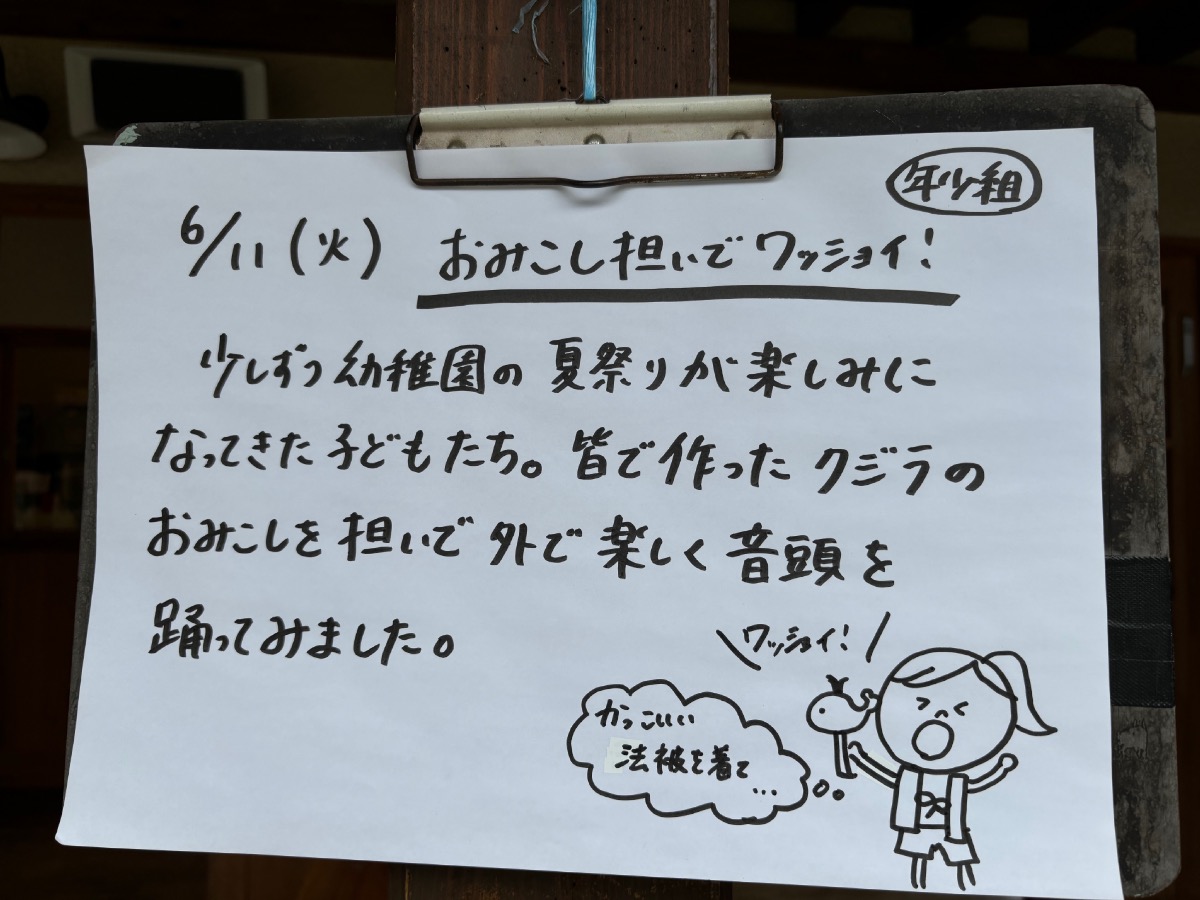 年少組
6/11(火) おみこし担いでワッショイ!
少しずつ幼稚園の夏祭りが楽しみに
なってきた子どもたち。皆で作ったクジラの
おみこしを担いで外で楽しく音頭を
踊ってみました。
ワッショイ!
かっこいい
法被を着て
...